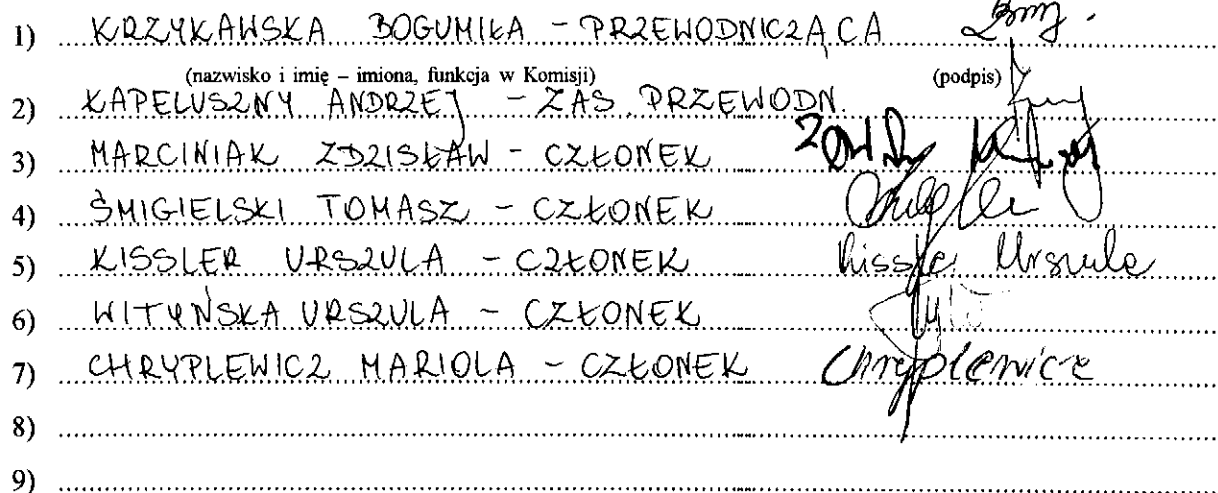 1) KRZYKAWSKA BOGUMIŁA - PRZEWODNICZĄCA
(nazwisko i imię – imiona, funkcja w Komisji) (podpis)
2) KAPELUSZNY ANDRZEJ - ZAS. PRZEWODN.
3) MARCINIAK ZDZISŁAW - CZŁONEK
4) ŚMIGIELSKI TOMASZ - CZŁONEK
5) KISSLER URSZULA - CZŁONEK Kissler Urszula
6) WITYŃSKA URSZULA - CZŁONEK
7) CHRYPLEWICZ MARIOLA - CZŁONEK Chryplewicz
8)
9)